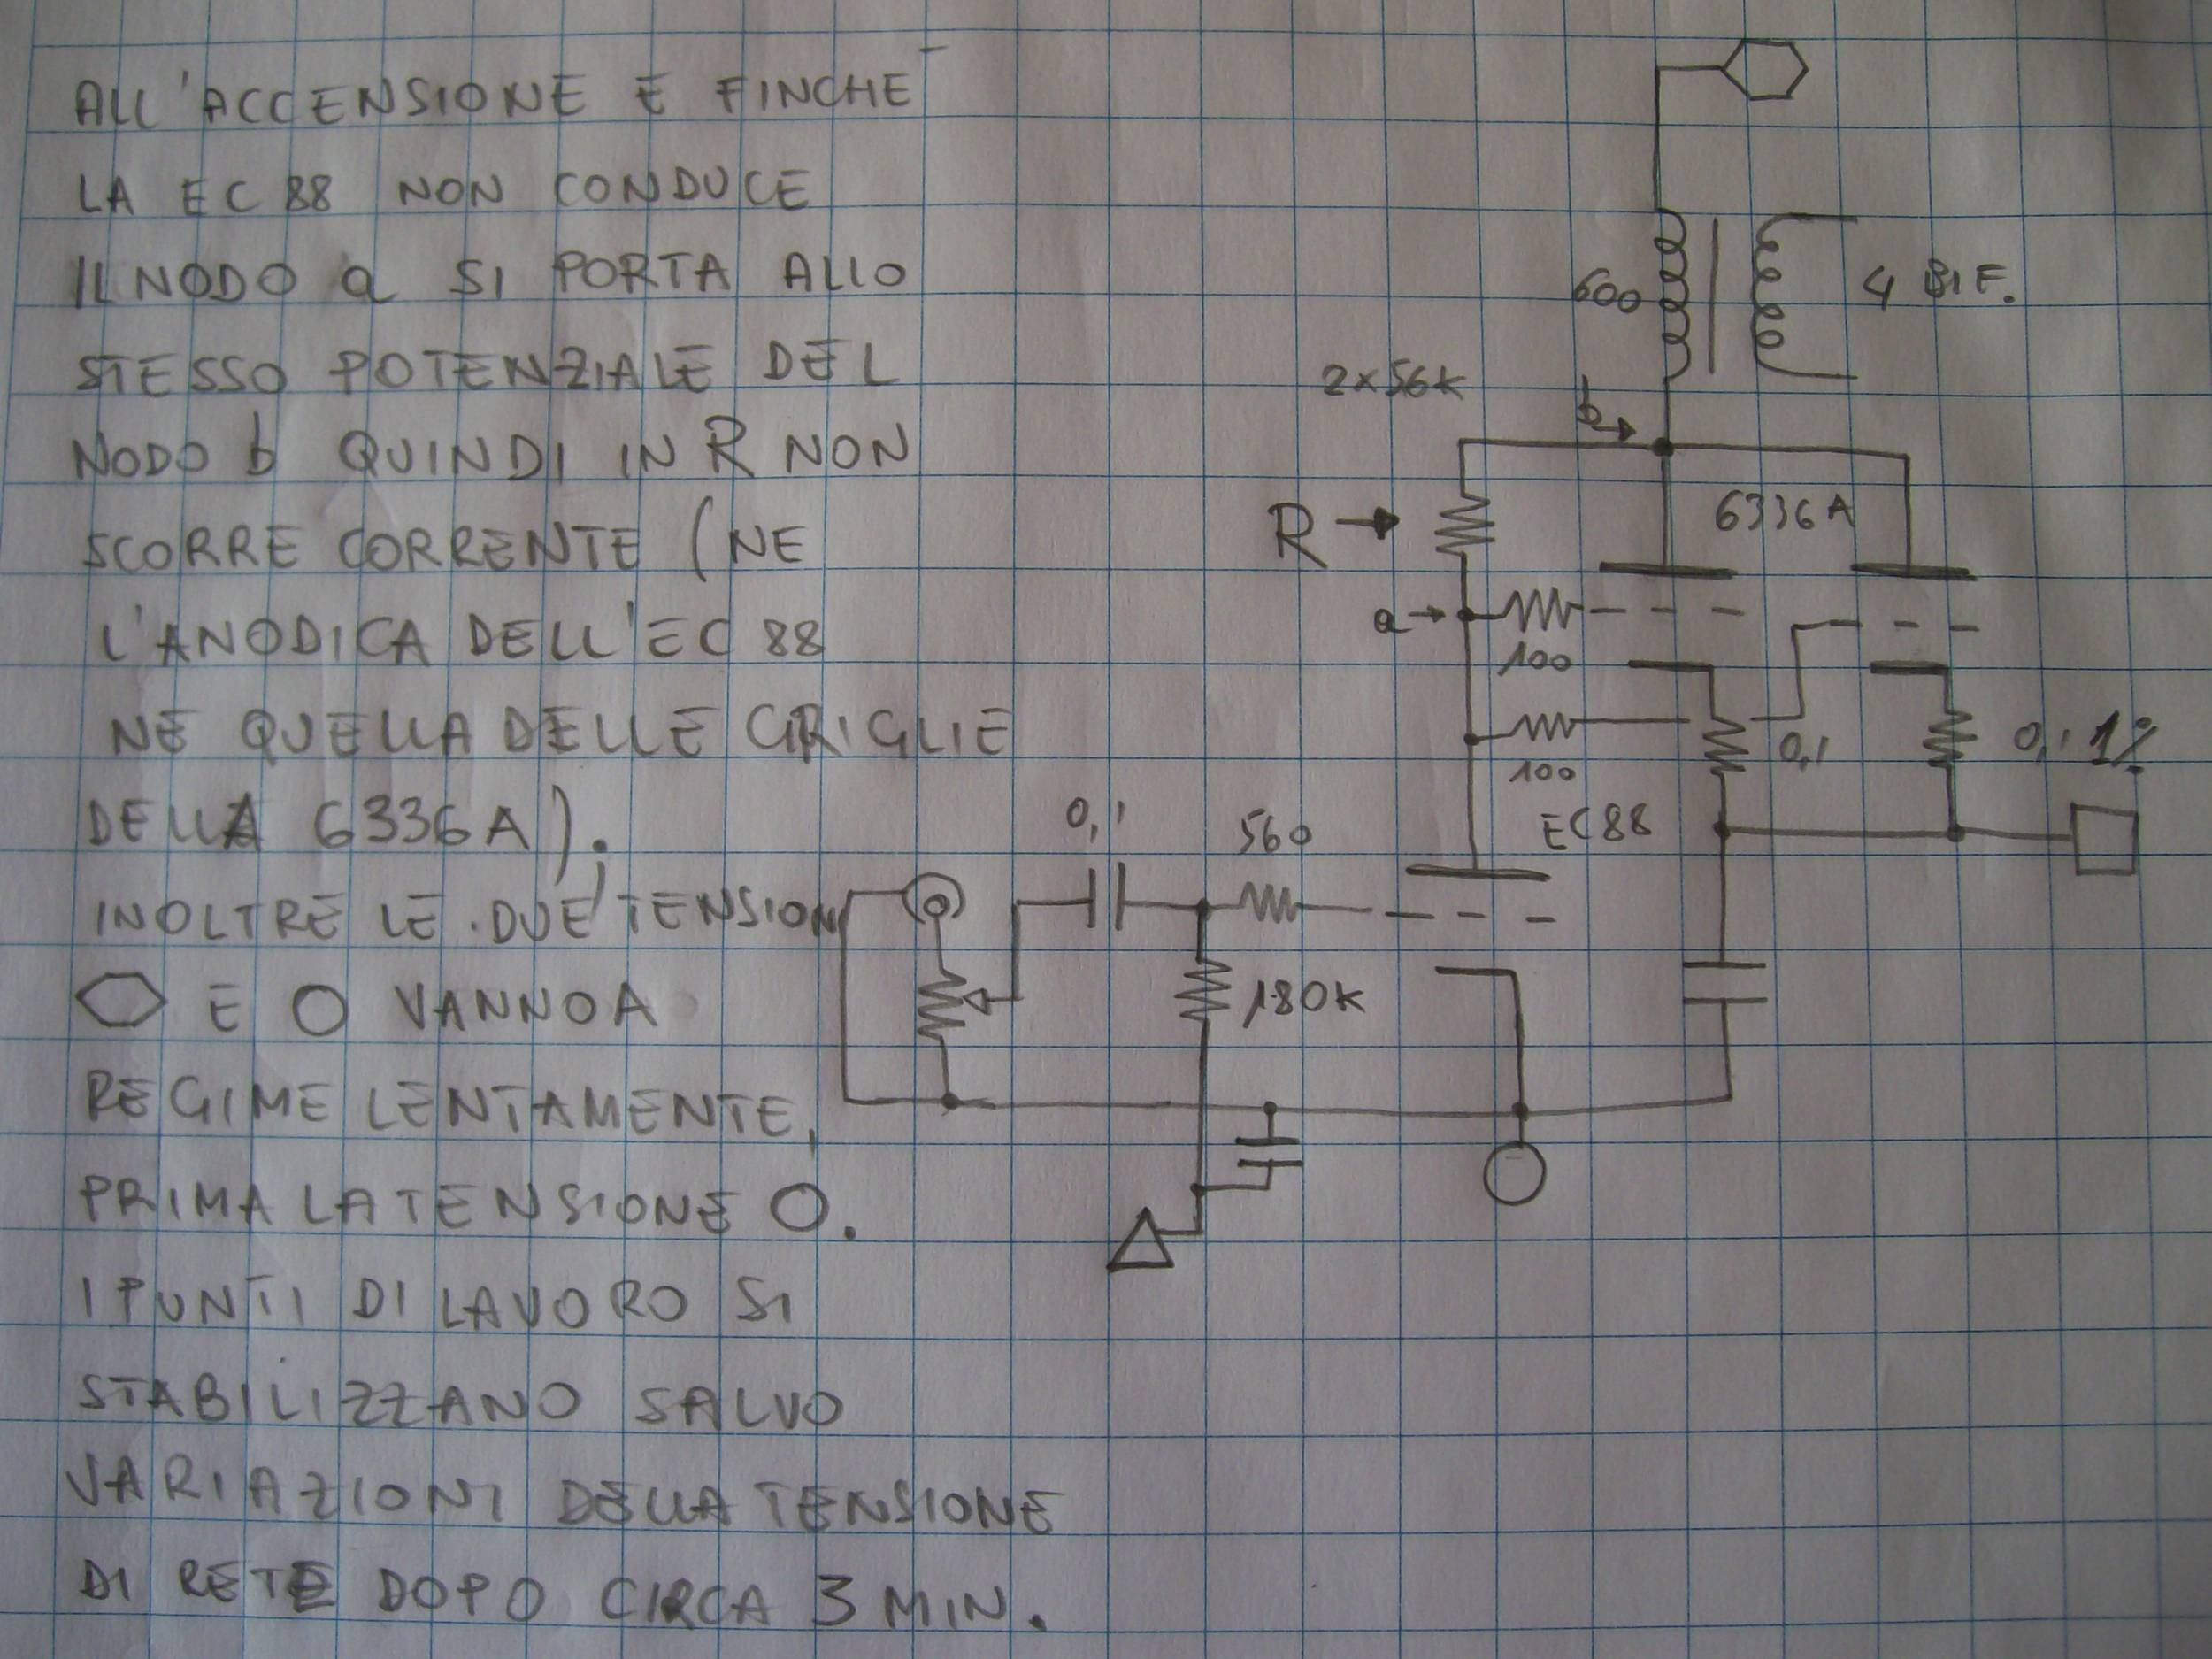 ALL'ACCENSIONE E FINCHE'
LA EC88 NON CONDUCE
IL NODO a SI PORTA ALLO
STESSO POTENZIALE DEL
NODO b QUINDI IN R NON
SCORRE CORRENTE (NE
L'ANODICA DELL'EC88
NE QUELLA DELLE GRIGLIE
DELLA 6336A).
INOLTRE LE DUE TENSIONI
⬡ E O VANNO A
REGIME LENTAMENTE,
PRIMA LA TENSIONE O.
I PUNTI DI LAVORO SI
STABILIZZANO SALVO
VARIAZIONI DELLA TENSIONE
DI RETE DOPO CIRCA 3 MIN.
600
4 BIF.
2x56K
b
6336A
R
a
100
100
0,1
0,1 1%
EC88
0,1
560
180K